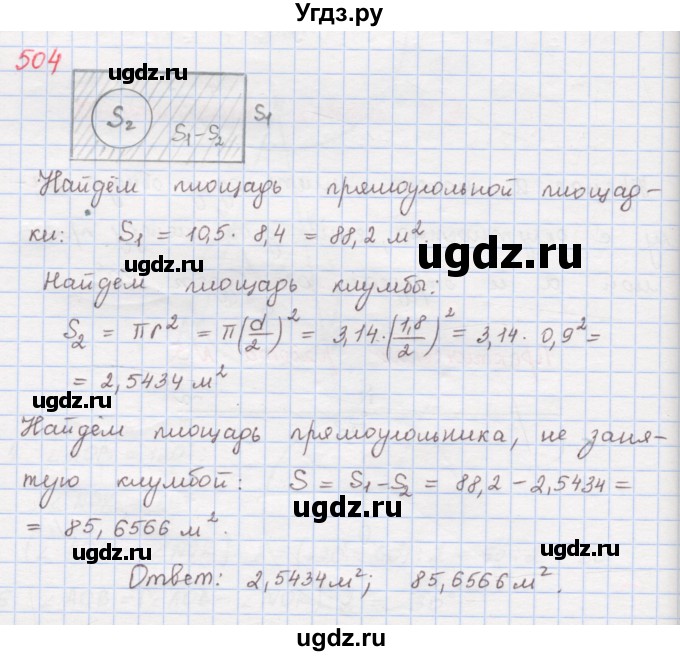 Угдз.ру
504
ugdz.ru
S₂ S₁-S₂ S₁
ugdz.ru
Найдём площадь прямоугольной площад-
ки: S₁ = 10,5 · 8,4 = 88,2 м².
ugdz.ru
ugdz.ru
Найдём площадь клумбы:
S₂ = πr² = π(d/2)² = 3,14·(1,8/2)² = 3,14 · 0,9² =
ugdz.ru
= 2,5434 м²
ugdz.ru
Найдём площадь прямоугольника, не заня-
тую клумбой: S = S₁-S₂ = 88,2 - 2,5434 =
ugdz.ru
= 85,6566 м².
ugdz.ru
ugdz.ru
Ответ: 2,5434м²; 85,6566м².
ugdz.ru